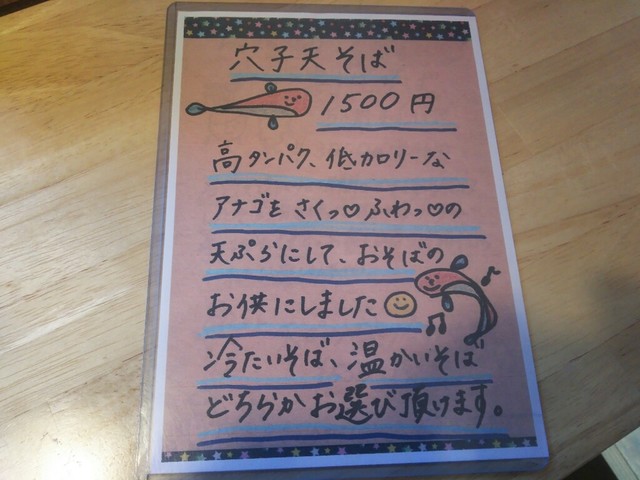 穴子天そば
1500円
高タンパク、低カロリーな
アナゴを さくっ♡ふわっ♡の
天ぷらにして、おそばの
お供にしました
冷たいそば、温かいそば
どちらかお選び頂けます。